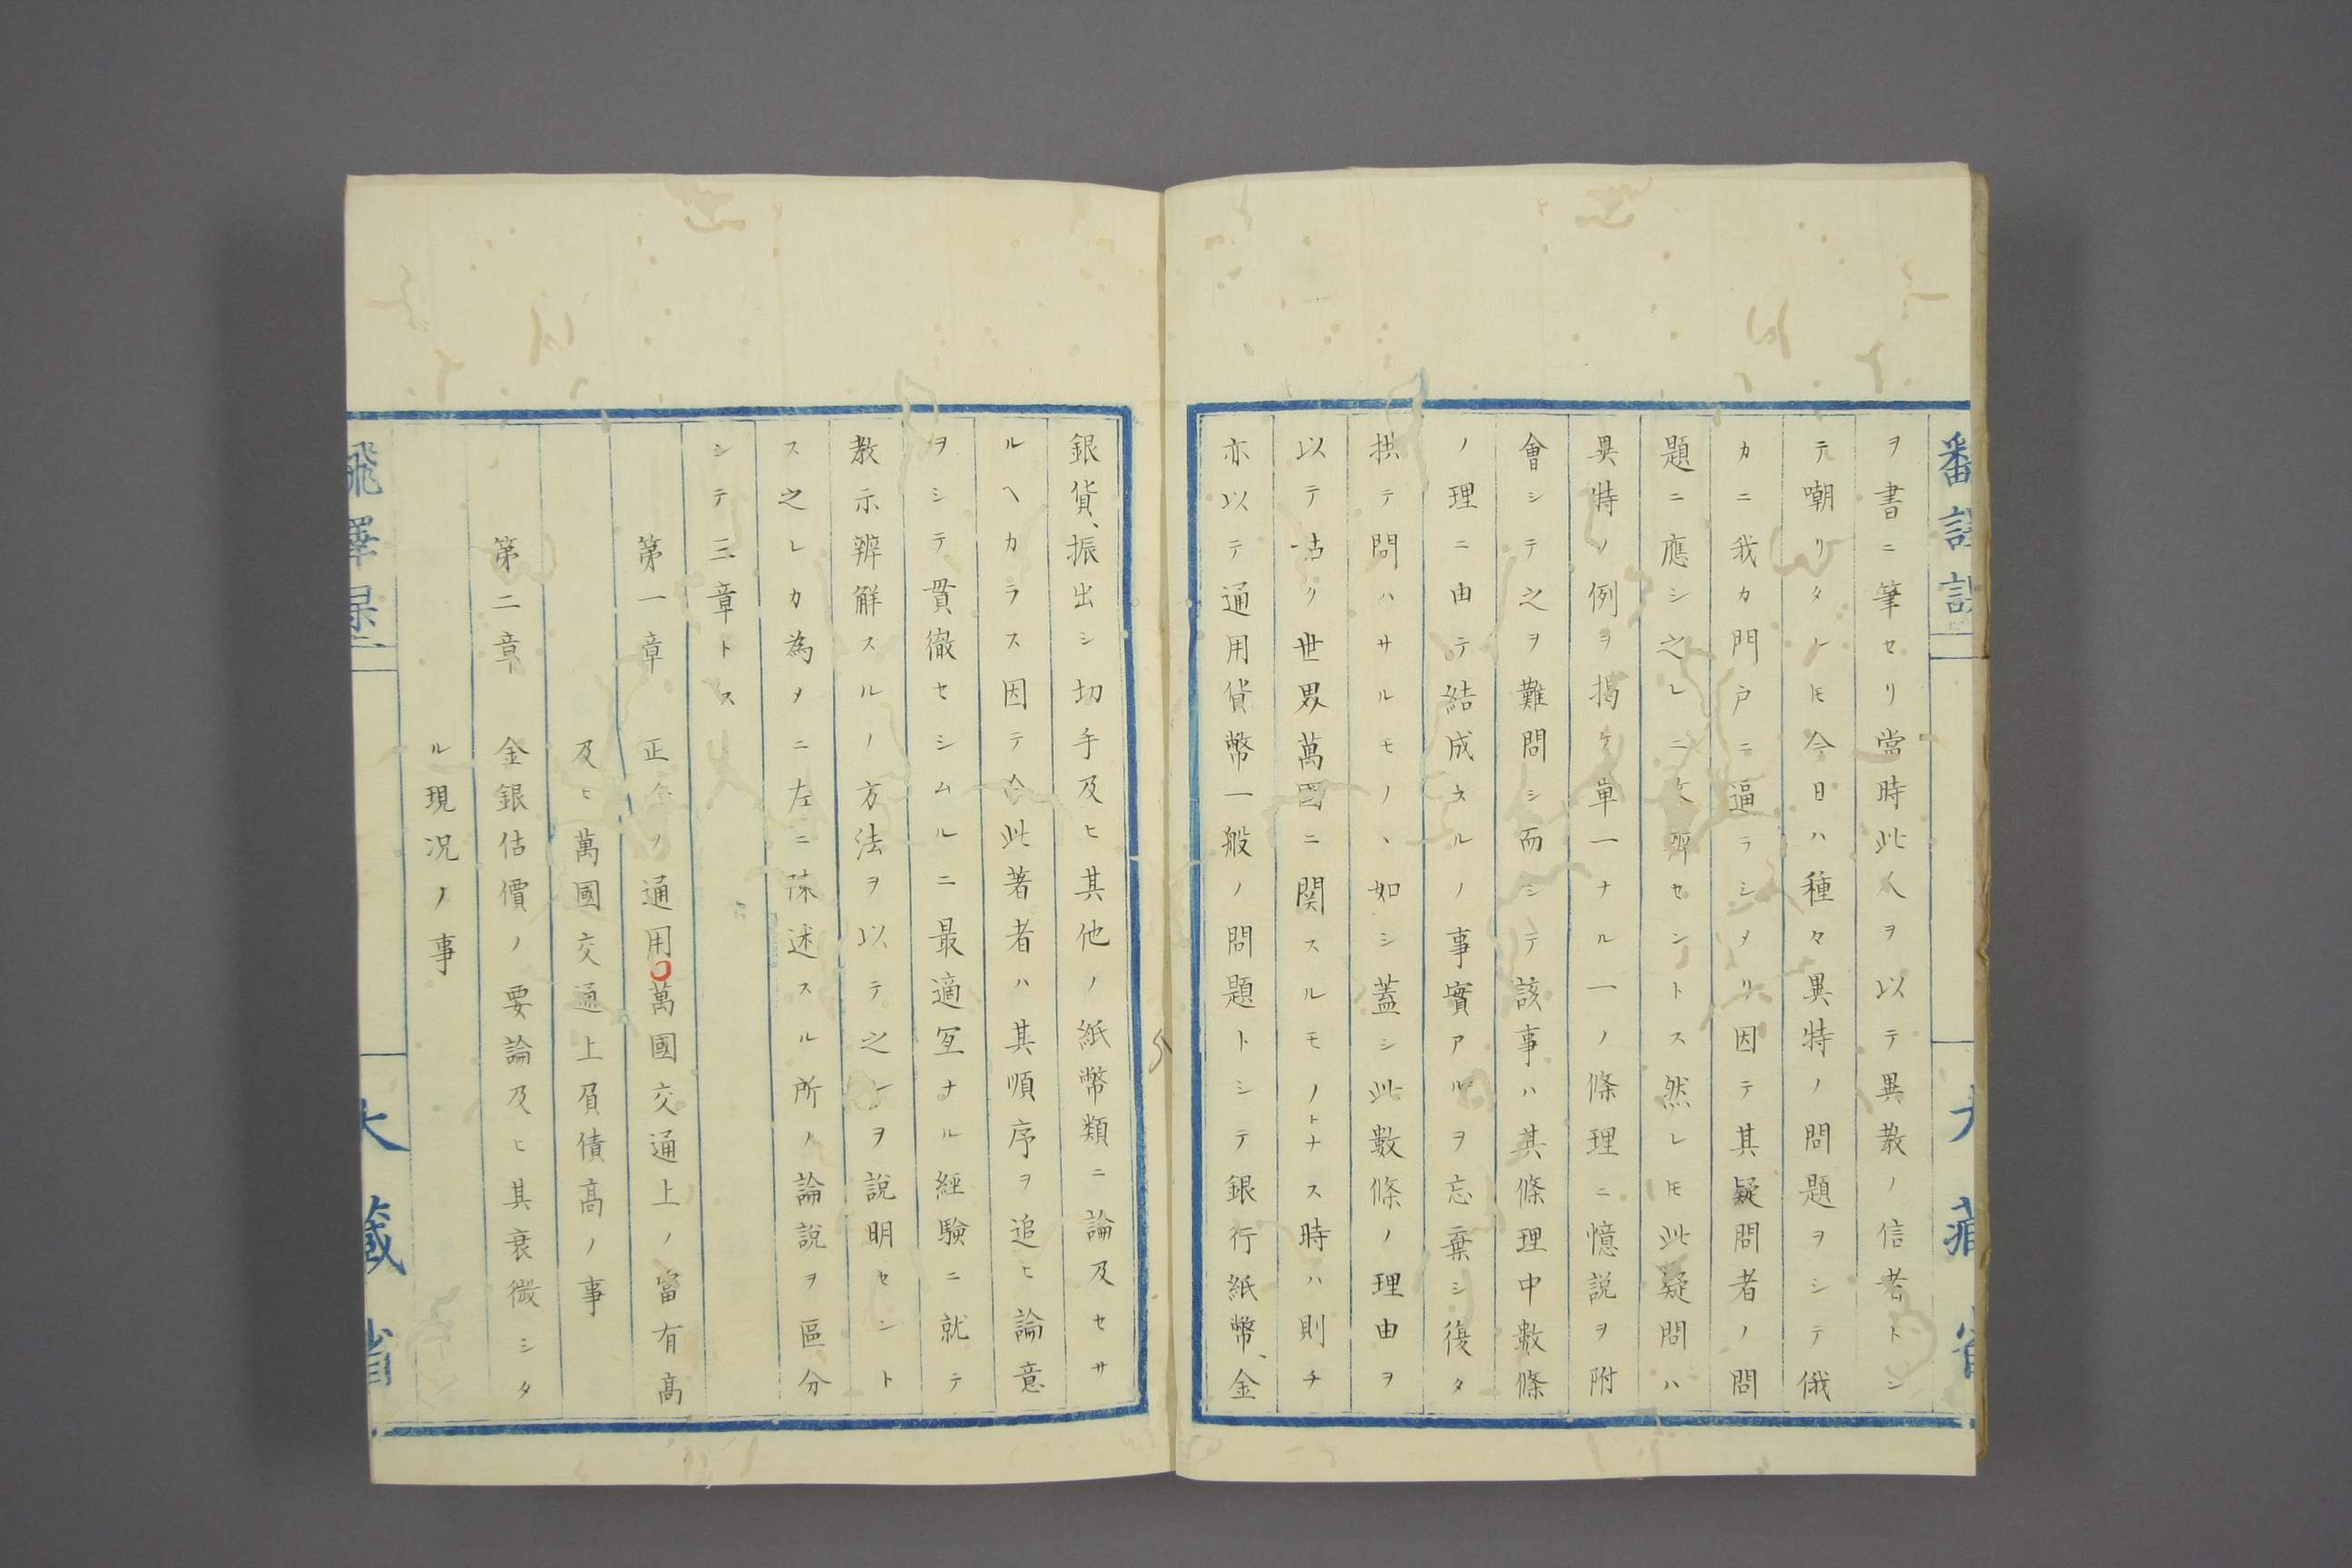 ヲ書ニ筆セリ當時此人ヲ以テ異教ノ信者トシ
テ嘲リタレ𪜈今日ハ種々異特ノ問題ヲシテ俄
カニ我カ門戸ニ逼ラシメリ因テ其疑問者ノ問
題ニ應シ之レニ答セントス然レ𪜈此疑問ハ
異特ノ例ヲ掲ケ単一ナル一ノ條理ニ憶説ヲ附
會シテ之ヲ難問シ而シテ該事ハ其條理中數條
ノ理ニ由テ結成スルノ事實アルヲ忘棄シ復タ
拱テ問ハサルモノヽ如シ蓋シ此數條ノ理由ヲ
以テ姑ク世界萬國ニ関スルモノトナス時ハ則チ
亦以テ通用貨幣一般ノ問題トシテ銀行紙幣、金
銀貨、振出シ切手及ヒ其他ノ紙幣類ニ論及セサ
ルヘカラス因テ今此著者ハ其順序ヲ追ヒ論意
ヲシテ貫徹セシムルニ最適冝ナル経験ニ就テ
教示辨解スルノ方法ヲ以テ之レヲ説明セント
ス之レカ為メニ左ニ陳述スル所ノ論説ヲ區分
シテ三章トス
第一章　正金ノ通用萬國交通上ノ富有髙
及ヒ萬國交通上負債髙ノ事
第二章　金銀估價ノ要論及ヒ其衰微シタ
ル現況ノ事
大藏省